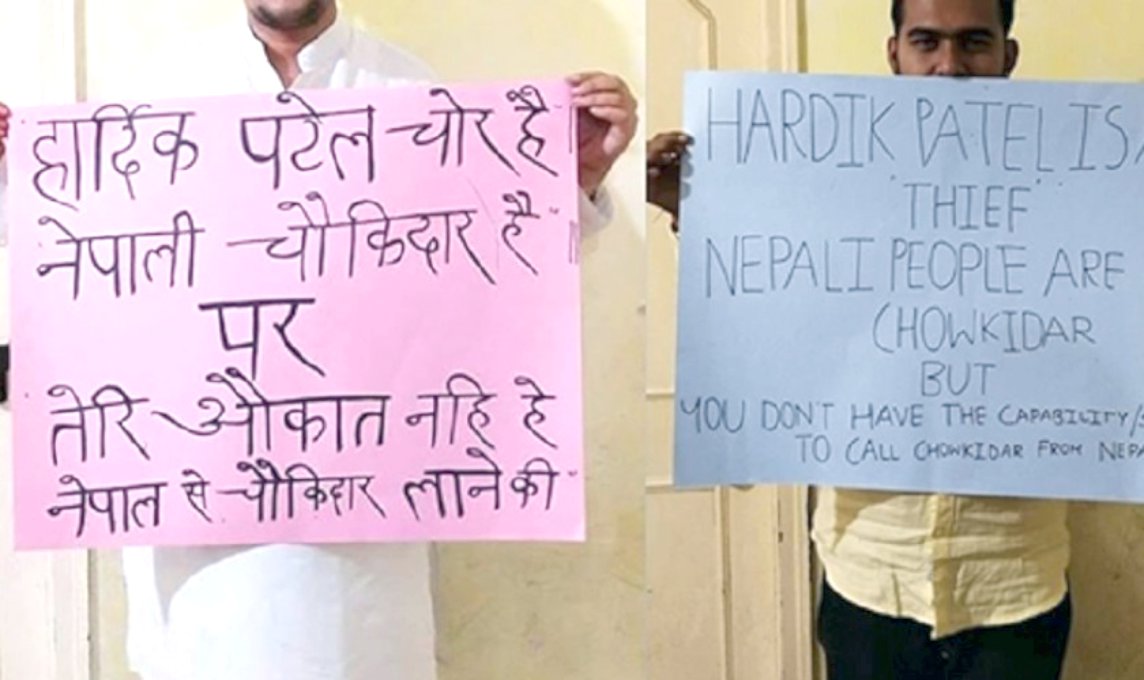 हार्दिक पटेल चोर है
नेपाली चौकिदार है
पर
तेरि औकात नहि हे
नेपाल से चौकिदार लाने की
HARDIK PATEL IS
THIEF
NEPALI PEOPLE ARE
CHOWKIDAR
BUT
YOU DON'T HAVE THE CAPABILITY/
TO CALL CHOWKIDAR FROM NEPA